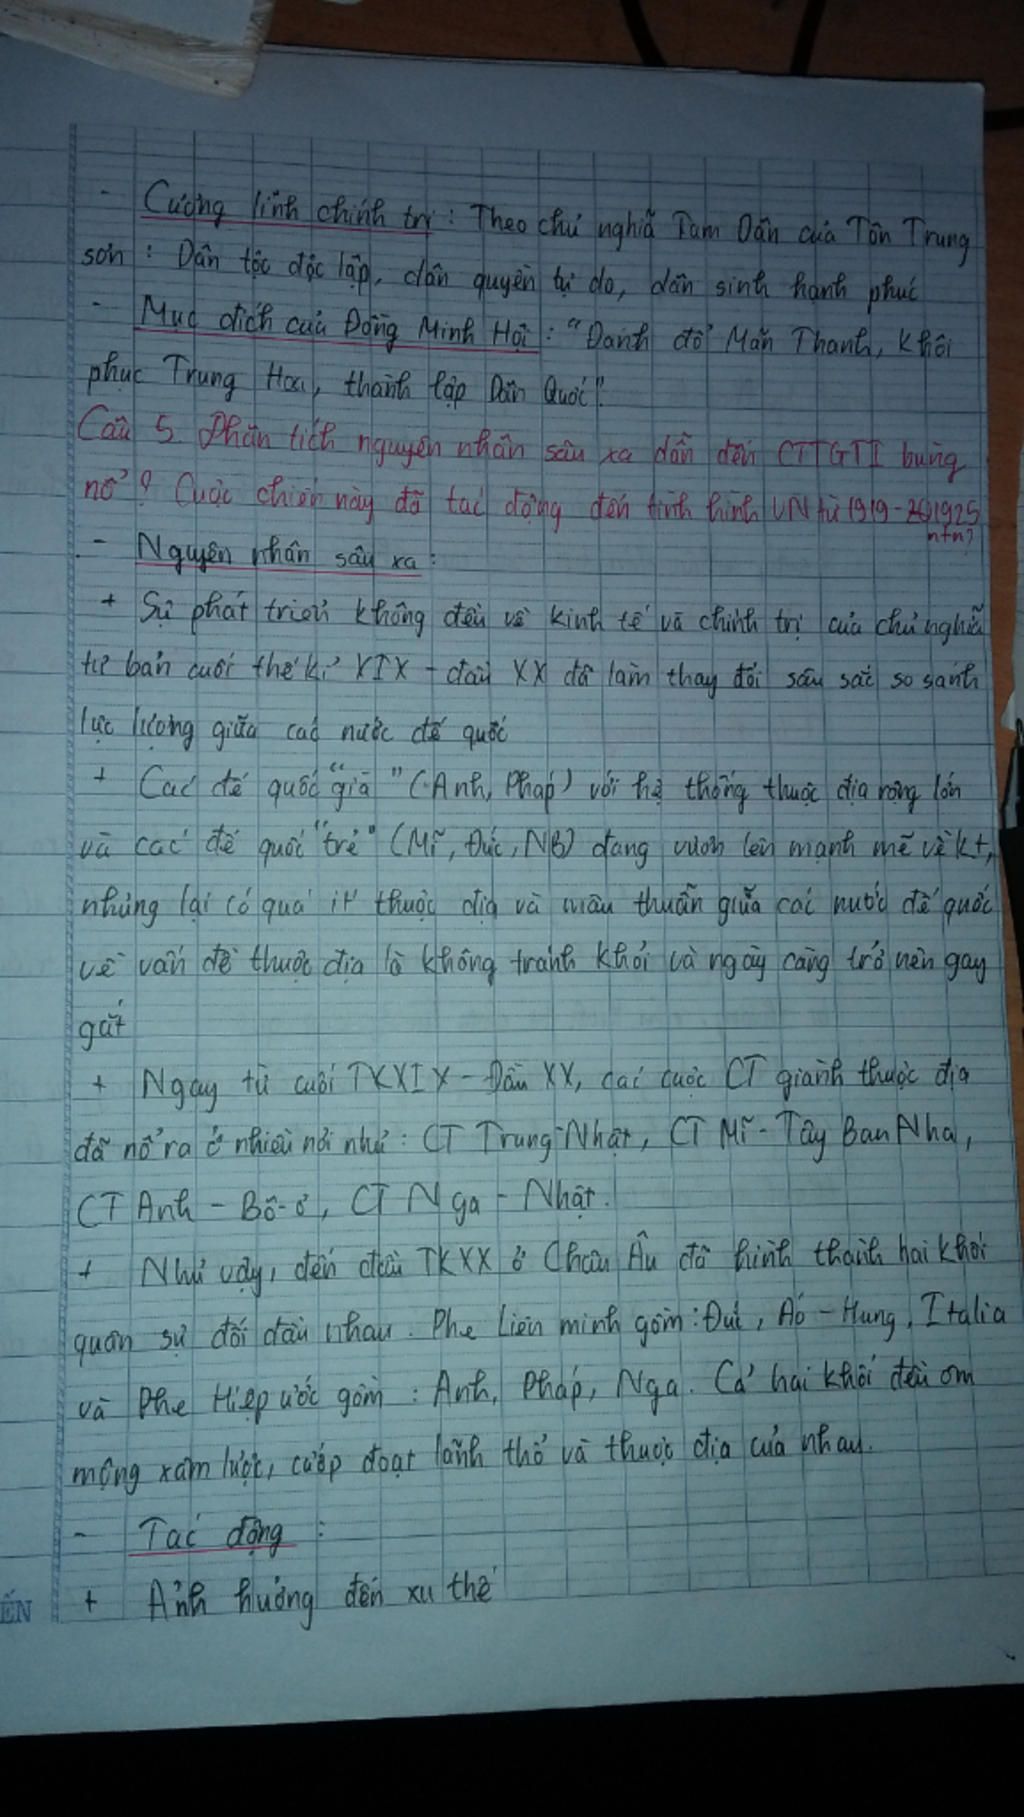 - Cương lĩnh chính trị : Theo chủ nghĩa Tam Dân của Tôn Trung
sơn : Dân tộc độc lập, dân quyền tự do, dân sinh hạnh phúc
- Mục đích của Đồng Minh Hội : "Đánh đổ Mãn Thanh, khôi
phục Trung Hoa, thành lập Dân Quốc".
Câu 5. Phân tích nguyên nhân sâu xa dẫn đến CTTGTI bùng
nổ ? Cuộc chiến này đã tác động đến tình hình VN từ 1919-1925
ntn?
- Nguyên nhân sâu xa :
+ Sự phát triển không đều về kinh tế và chính trị của chủ nghĩa
tư bản cuối thế kỉ XIX - đầu XX đã làm thay đổi sâu sắc so sánh
lực lượng giữa các nước đế quốc
+ Các đế quốc "già" (Anh, Pháp) với hệ thống thuộc địa rộng lớn
và các đế quốc "trẻ" (Mĩ, Đức, NB) đang vươn lên mạnh mẽ về kt,
nhưng lại có quá ít thuộc địa và mâu thuẫn giữa các nước đế quốc
về vấn đề thuộc địa là không tránh khỏi và ngày càng trở nên gay
gắt
+ Ngay từ cuối TKXIX - Đầu XX, các cuộc CT giành thuộc địa
đã nổ ra ở nhiều nơi như : CT Trung-Nhật, CT Mĩ - Tây Ban Nha,
CT Anh - Bô-ơ, CT Nga - Nhật.
+ Như vậy, đến đầu TKXX ở Châu Âu đã hình thành hai khối
quân sự đối đầu nhau. Phe Liên minh gồm : Đức, Áo - Hung, Italia
và Phe Hiệp ước gồm : Anh, Pháp, Nga. Cả hai khối đều ôm
mộng xâm lược, cướp đoạt lãnh thổ và thuộc địa của nhau.
- Tác động :
+ Ảnh hưởng đến xu thế
ẾN